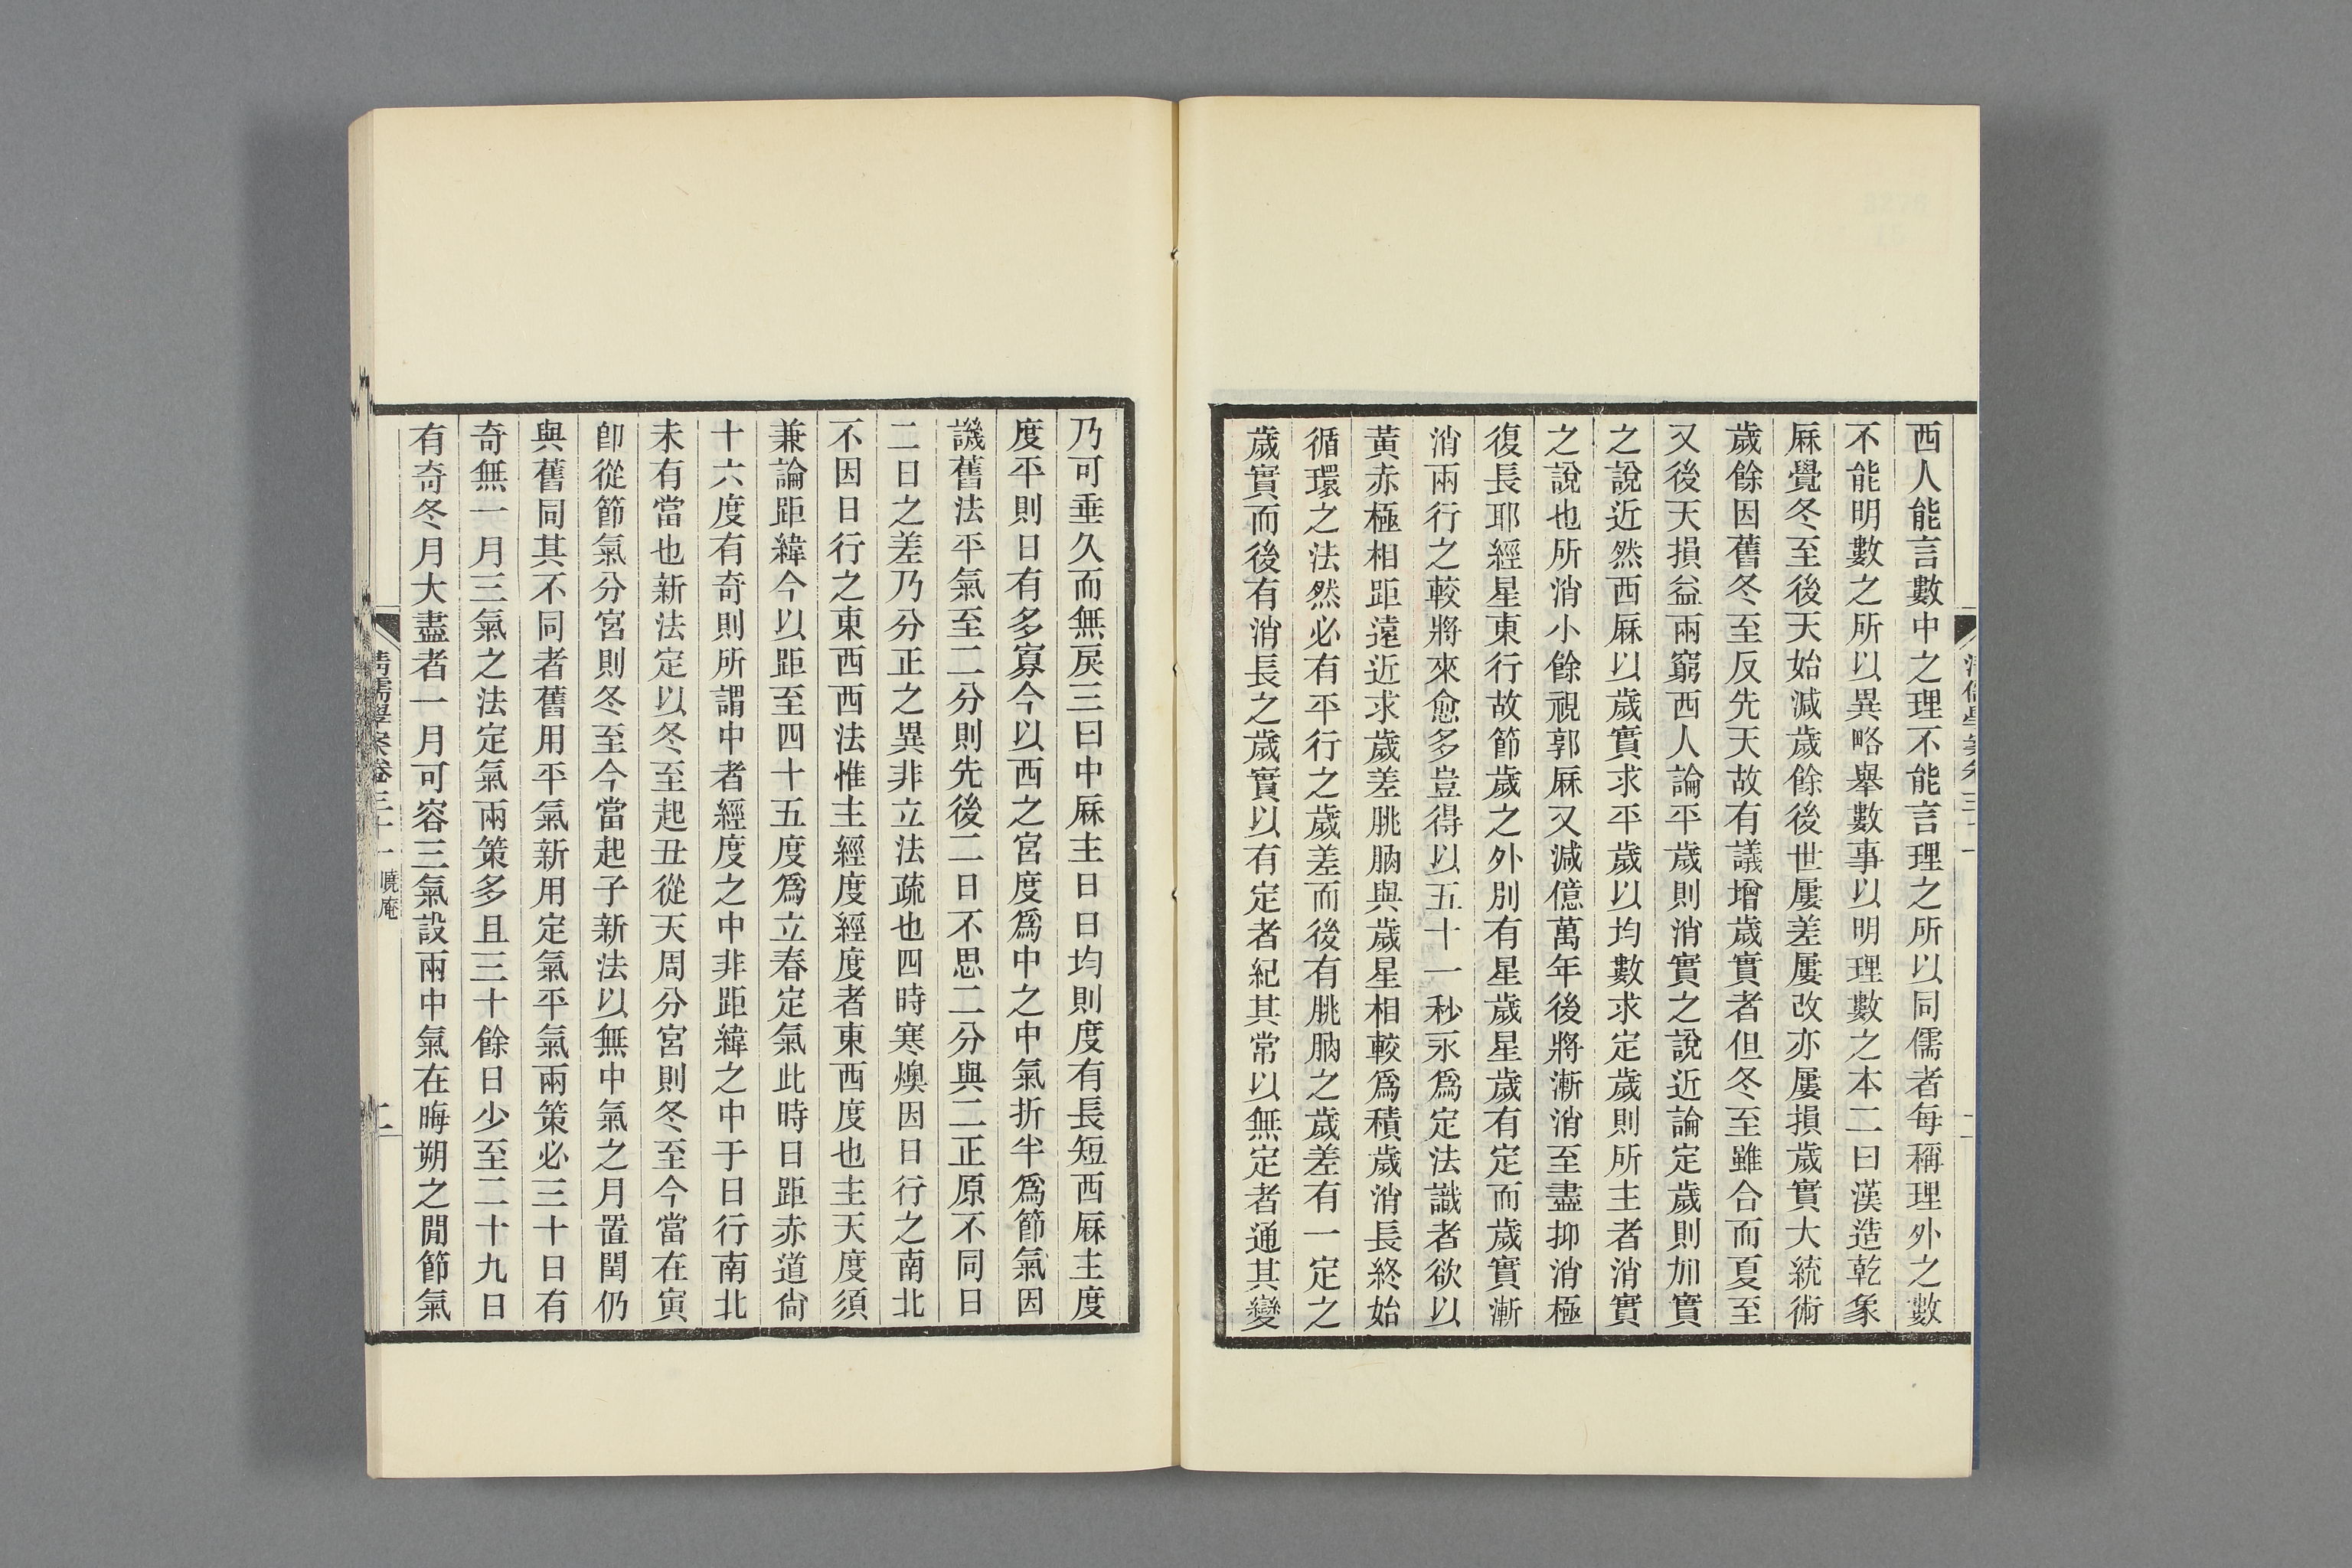 西人能言數中之理不能言理之所以同儒者每稱理外之數
不能明數之所以異略舉數事以明理數之本二曰漢造乾象
厤覺冬至後天始減歲餘後世屢差屢改亦屢損歲實大統術
歲餘因舊冬至反先天故有議增歲實者但冬至雖合而夏至
又後天損益兩窮西人論平歲則消實之說近論定歲則加實
之說近然西厤以歲實求平歲以均數求定歲則所主者消實
之說也所消小餘視郭厤又減億萬年後將漸消至盡抑消極
復長耶經星東行故節歲之外別有星歲星歲有定而歲實漸
消兩行之較將來愈多豈得以五十一秒永爲定法識者欲以
黃赤極相距遠近求歲差朓朒與歲星相較爲積歲消長終始
循環之法然必有平行之歲差而後有朓朒之歲差有一定之
歲實而後有消長之歲實以有定者紀其常以無定者通其變
乃可垂久而無戾三曰中厤主日日均則度有長短西厤主度
度平則日有多寡今以西之宮度爲中之中氣折半爲節氣因
譏舊法平氣至二分則先後二日不思二分與二正原不同日
二日之差乃分正之異非立法疏也四時寒燠因日行之南北
不因日行之東西西法惟主經度經度者東西度也主天度須
兼論距緯今以距至四十五度爲立春定氣此時日距赤道尙
十六度有奇則所謂中者經度之中非距緯之中于日行南北
未有當也新法定以冬至起丑從天周分宮則冬至今當在寅
卽從節氣分宮則冬至今當起子新法以無中氣之月置閏仍
與舊同其不同者舊用平氣新用定氣平氣兩策必三十日有
奇無一月三氣之法定氣兩策多且三十餘日少至二十九日
有奇冬月大盡者一月可容三氣設兩中氣在晦朔之閒節氣
清儒學案卷三十一 曉庵
二